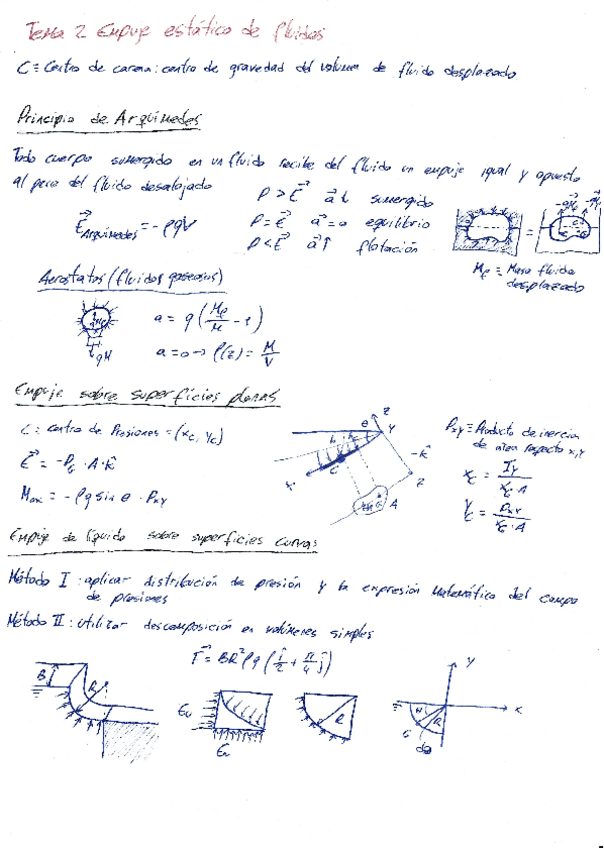 Tema 2 Empuje estático de fluidos
C ≡ Centro de carena: centro de gravedad del volumen de fluido desplazado
Principio de Arquímedes
Todo cuerpo sumergido en un fluido recibe del fluido un empuje igual y opuesto
al peso del fluido desalojado
P > E⃗ a⃗↓ sumergido
E⃗ Arquímedes = -ρgV
P = E⃗ a⃗=0 equilibrio
P < E⃗ a⃗↑ flotación
M_F ≡ Masa fluido
desplazado
Aerostatos (fluidos gaseosos)
a = g (M_F/M - 1)
gM
a=0 → ρ(z) = M/V
Empuje sobre superficies planas
C: centro de Presiones = (x_C, y_C)
E⃗ = -P_C · A · k̂
M_ax = -ρg sin θ · P_xy
θ z y
-k̂
x C 2 A
P_xy ≡ Producto de inercia
de área respecto x,y
x_C = I_y / x_C · A
y_C = P_xy / x_C · A
Empuje de líquido sobre superficies curvas
Método I: aplicar distribución de presión y la expresión matemática del campo
de presiones
Método II: utilizar descomposición en volúmenes simples
F⃗ = BR²ρg (î/2 + π/4 ĵ)
B R
R
y
x
R
dθ